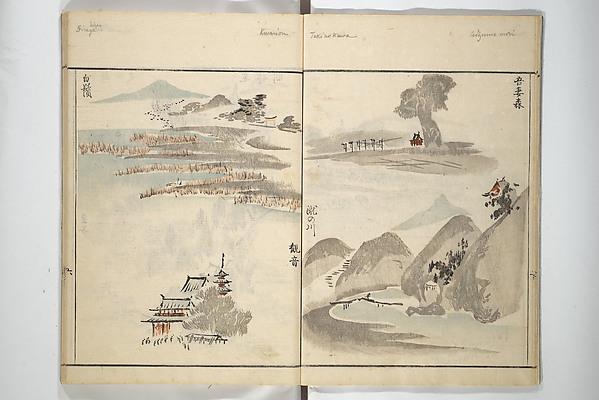 吾妻森
滝の川
観音
白鬚
Kwannon
Taki no Kawa
Adzuma mori